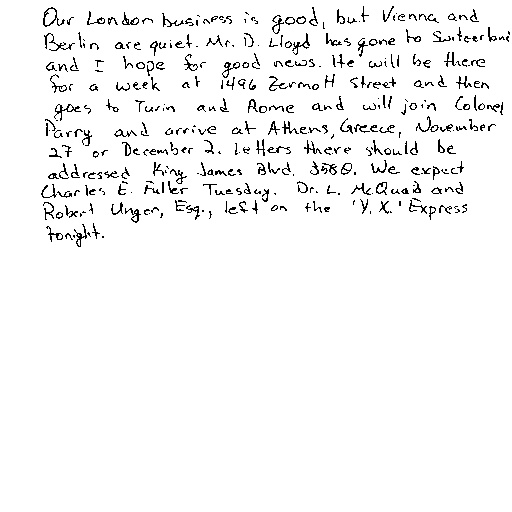 Our London business is good, but Vienna and
Berlin are quiet. Mr. D. Lloyd has gone to Switzerland
and I hope for good news. He will be there
for a week at 1496 Zermott Street and then
goes to Turin and Rome and will join Colonel
Parry and arrive at Athens, Greece, November
27 or December 2. Letters there should be
addressed King James Blvd. 3580. We expect
Charles E. Fuller Tuesday. Dr. L. McQuaid and
Robert Unger, Esq., left on the 'Y.X.' Express
tonight.